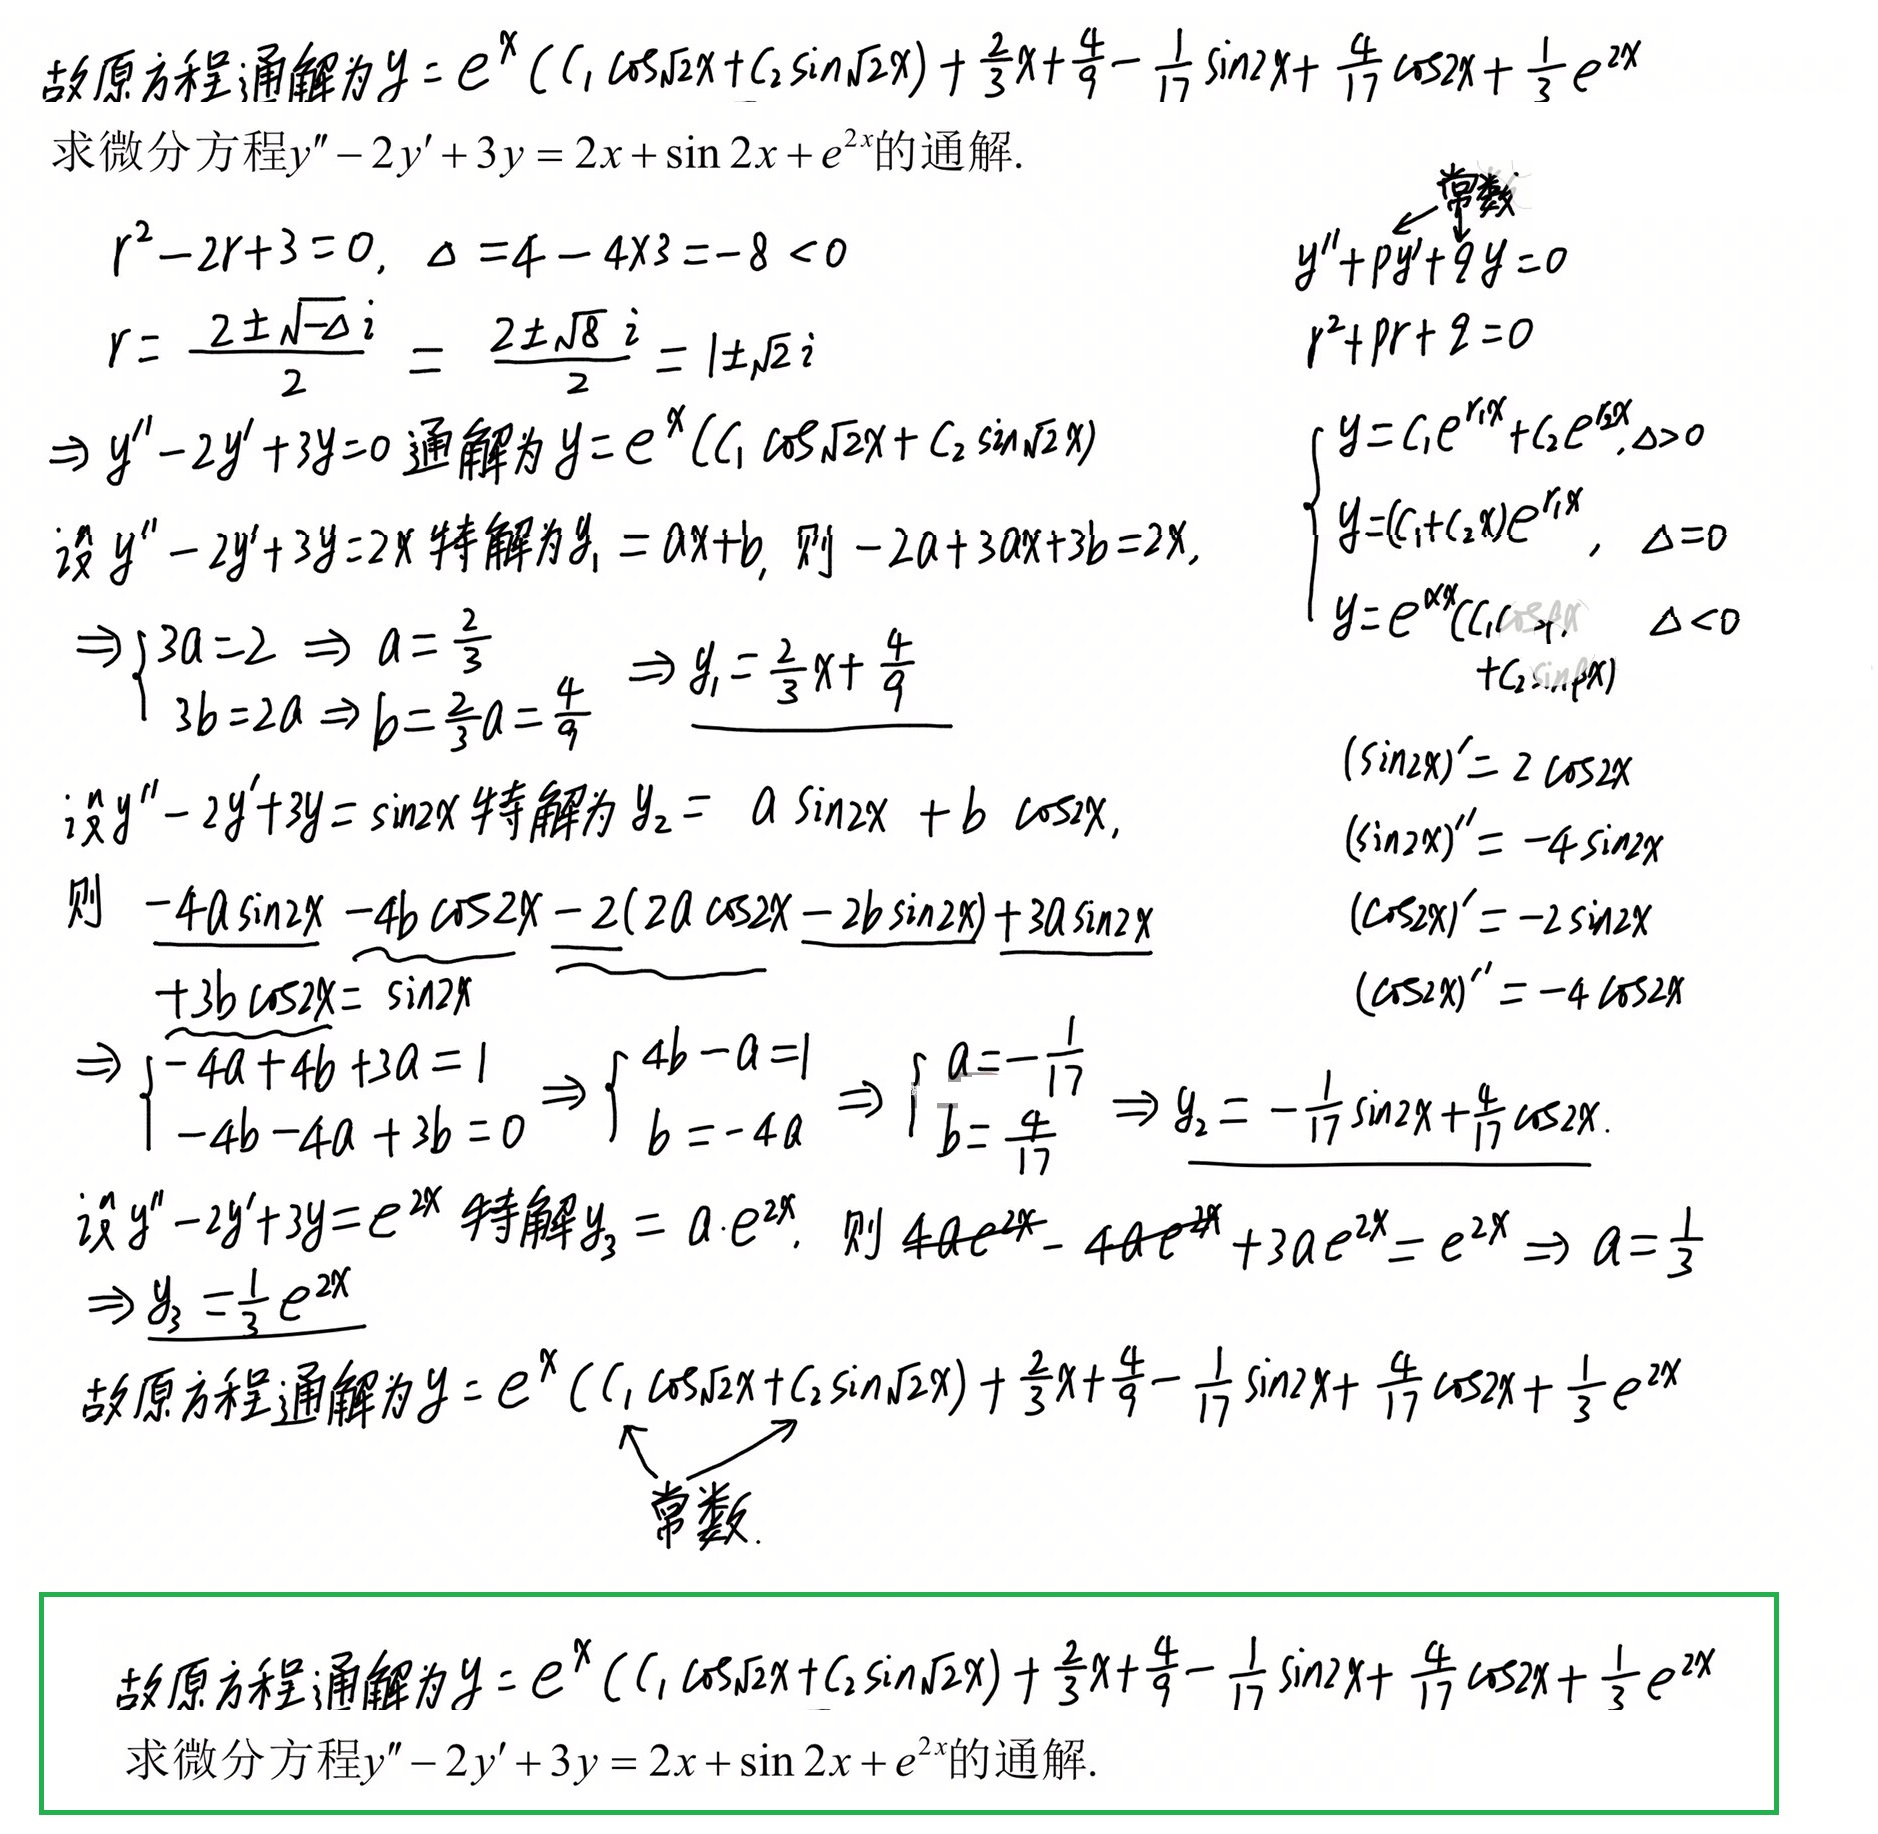 故原方程通解为y = e^x (C₁ cos√2x + C₂ sin√2x) + 2/3 x + 4/9 - 1/17 sin2x + 4/17 cos2x + 1/3 e^{2x}
求微分方程y″ - 2y′ + 3y = 2x + sin 2x + e^{2x}的通解.
r² - 2r + 3 = 0, Δ = 4 - 4×3 = -8 < 0
r = (2 ± √-Δ i)/2 = (2 ± √8 i)/2 = 1 ± √2 i
⇒ y″ - 2y′ + 3y = 0 通解为 y = e^x (C₁ cos√2x + C₂ sin√2x)
设 y″ - 2y′ + 3y = 2x 特解为 y₁ = ax + b, 则 -2a + 3ax + 3b = 2x,
⇒ { 3a = 2 ⇒ a = 2/3
3b = 2a ⇒ b = 2/3 a = 4/9 ⇒ y₁ = 2/3 x + 4/9
设 y″ - 2y′ + 3y = sin2x 特解为 y₂ = a sin2x + b cos2x,
则 -4a sin2x - 4b cos2x - 2(2a cos2x - 2b sin2x) + 3a sin2x
+ 3b cos2x = sin2x
⇒ { -4a + 4b + 3a = 1 ⇒ { 4b - a = 1 ⇒ { a = -1/17
-4b - 4a + 3b = 0 b = -4a b = 4/17 ⇒ y₂ = -1/17 sin2x + 4/17 cos2x.
设 y″ - 2y′ + 3y = e^{2x} 特解 y₃ = a·e^{2x}, 则 4ae^{2x} - 4ae^{2x} + 3ae^{2x} = e^{2x} ⇒ a = 1/3
⇒ y₃ = 1/3 e^{2x}
故原方程通解为 y = e^x (C₁ cos√2x + C₂ sin√2x) + 2/3 x + 4/9 - 1/17 sin2x + 4/17 cos2x + 1/3 e^{2x}
常数.
常数
y″ + py′ + qy = 0
r² + pr + q = 0
{ y = C₁e^{r₁x} + C₂e^{r₂x}, Δ>0
y = (C₁ + C₂x)e^{r₁x}, Δ = 0
y = e^{αx}(C₁cosβx Δ < 0
+ C₂sinβx)
(sin2x)′ = 2 cos2x
(sin2x)″ = -4 sin2x
(cos2x)′ = -2 sin2x
(cos2x)″ = -4 cos2x
故原方程通解为y = e^x (C₁ cos√2x + C₂ sin√2x) + 2/3 x + 4/9 - 1/17 sin2x + 4/17 cos2x + 1/3 e^{2x}
求微分方程y″ - 2y′ + 3y = 2x + sin 2x + e^{2x}的通解.